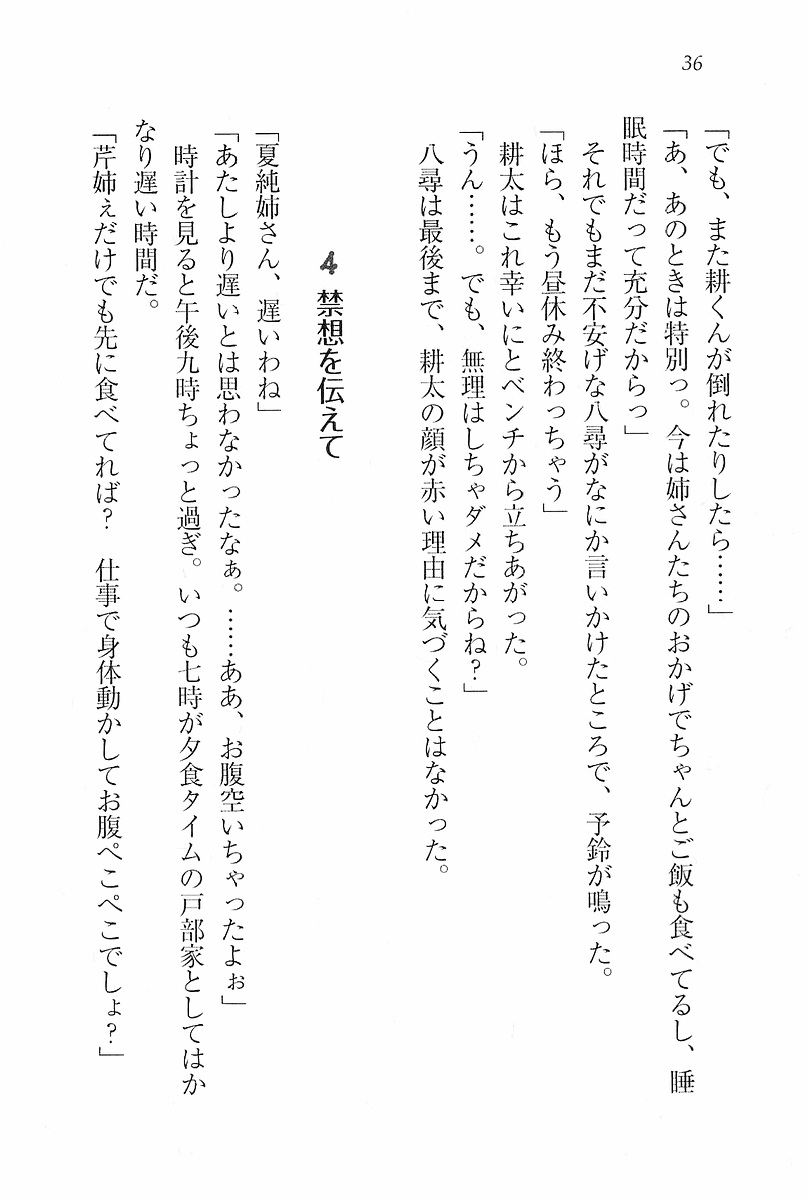 36
「でも、また耕くんが倒れたりしたら……」
「あ、あのときは特別っ。今は姉さんたちのおかげでちゃんとご飯も食べてるし、睡
眠時間だって充分だからっ」
それでもまだ不安げな八尋がなにか言いかけたところで、予鈴が鳴った。
「ほら、もう昼休み終わっちゃう」
耕太はこれ幸いにとベンチから立ちあがった。
「うん……。でも、無理はしちゃダメだからね？」
八尋は最後まで、耕太の顔が赤い理由に気づくことはなかった。
4 禁想を伝えて
「夏純姉さん、遅いわね」
「あたしより遅いとは思わなかったなぁ。……ああ、お腹空いちゃったよぉ」
時計を見ると午後九時ちょっと過ぎ。いつも七時が夕食タイムの戸部家としてはか
なり遅い時間だ。
「芹姉ぇだけでも先に食べてれば？　仕事で身体動かしてお腹ぺこぺこでしょ？」